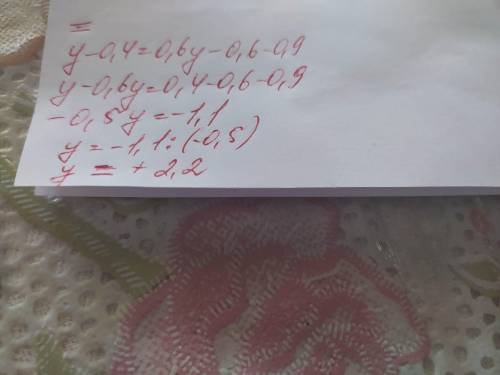 =
y-0,4=0,6y-0,6-0,9
y-0,6y=0,4-0,6-0,9
-0,5y=-1,1
y=-1,1:(-0,5)
y = +2,2